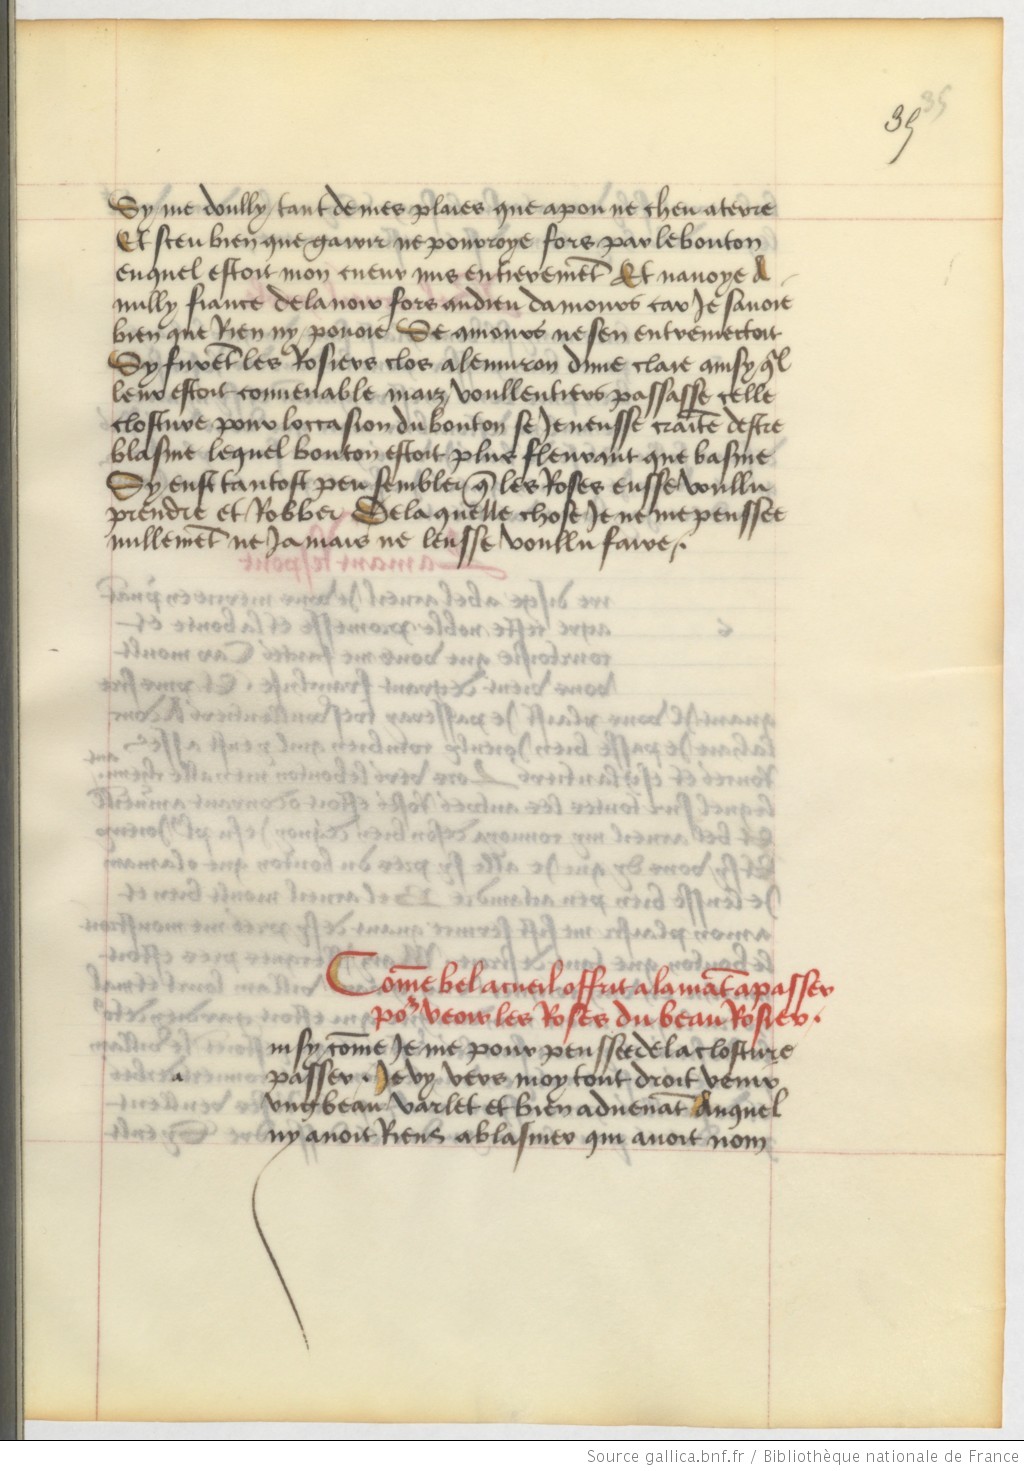 35 35
Sy me doully tant de mes plaies que a pou ne cheu a terre
Et sceu bien que garir ne pourroye fors par le bouton
enquel estoit mon cueur mis entierement Et navoye A
nully fiance de lavoir fors au dieu damours car Je savoie
bien que Rien ny povoie Se amours ne sen entremectoit
Sy furēt les Rosiers clos alenuiron dune claie ainsy ql
leur estoit conuenable maiz voullentiers passasse celle
closture pour loccasion du bouton se Je neusse crainte destre
blasme lequel bouton estoit plus fleurant que basme
Sy eust tantost peu sembler q̄ les Roses eusse voullu
prendre et Robber De la quelle chose Je ne me penssee
nullemēt ne Jamais ne leusse voullu faire.
Com̄e bel acueil offrit a lamāt a passer
po^r veoir les Roses du beau Rosier.
a
insy com̄e Je me pourpenssee de la closture
passer. Je vy vers moy tout droit venir
vng beau varlet et bien aduenāt Auquel
ny auoit Riens a blasmer qui auoit nom
Source gallica.bnf.fr / Bibliothèque nationale de France